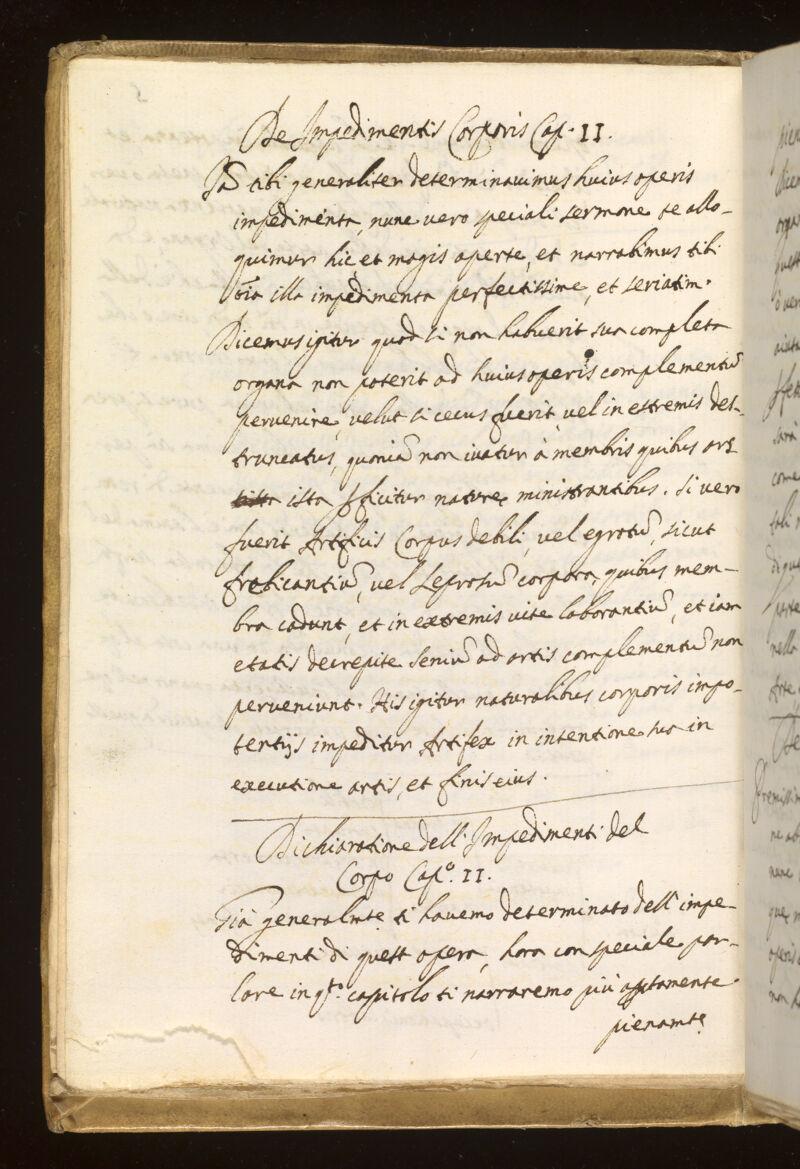 De Impedimentis Corporis Cap. II.
Iã tibi generaliter determinauimus huius operis
impedimenta, nunc vero speciali sermone te allo-
quimur hic, et magis aperte, et narrabimus tibi
oĩa illa impedimenta perfectissime, et seriatim.
Dicemus igitur quod si non habuerit sua completa
organa non poterit ad huius operis complementũ
pervenire, velut si cecus fuerit, vel in extremis des-
truncatus, quoniã non iuatur à membris quibus ars
ista pficitur nature ministrantibus. Si vero
fuerit Artificis Corpus debili, vel egrotũ, sicut
frebicantiũ, vel Leprosorũ corpora, quibus mem-
bra cadunt, et in extremis vite laborantiũ, et iam
etatis decrepite seniũ ad artis complementũ non
perveniunt. His igitur naturalibus corporis impo-
tentijs impeditur Artifex in intentione sua in
executione artis, et finis eius.
Dichiaratione dell'Impedimenti del
Corpo Capº. II.
Già generalmte ti havemo determinato dell'impe-
dimenti di quest opera, hora con speciale par-
lare in qtº. capitolo ti narraremo più apptamente
pienamte